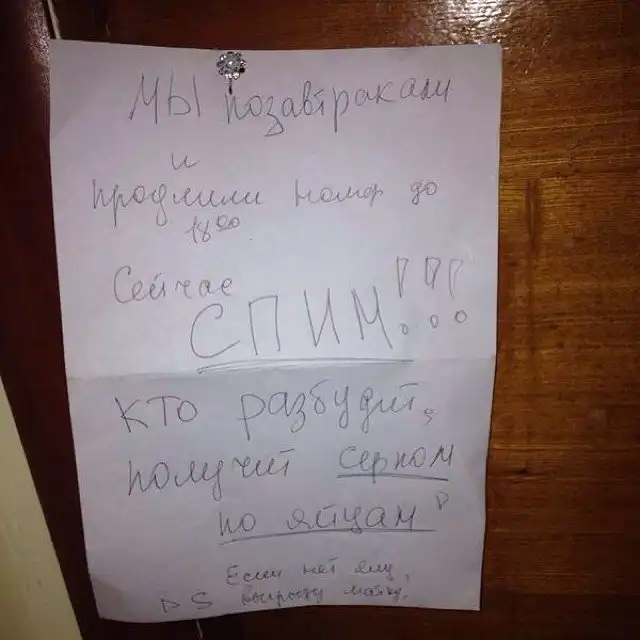 Мы позавтракали
и
продлили номер до
18 00
Сейчас
СПИМ!!!
Кто разбудит,
получит серпом
по яйцам!
Если нет яиц,
PS вырежу матку!